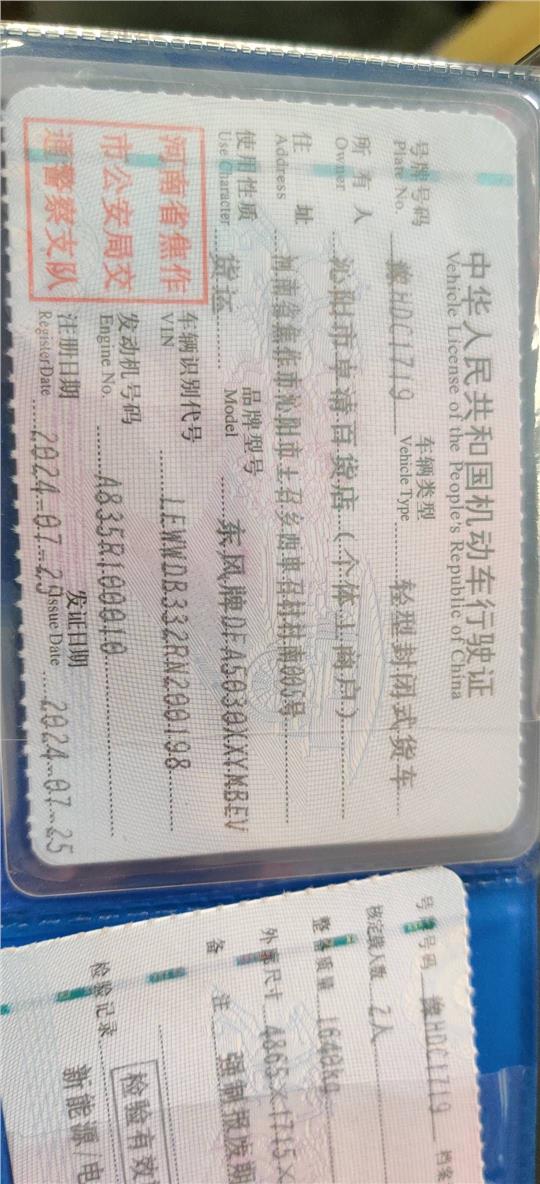 中华人民共和国机动车行驶证
Vehicle License of the People's Republic of China
号牌号码
Plate No.
豫HDC1719
车辆类型
Vehicle Type
轻型封闭式货车
所有人
Owner
沁阳市卓清百货店(个体工商户)
住址
Address
河南省焦作市沁阳市王召乡西申召村村南005号
使用性质
Use Character
货运
品牌型号
Model
东风牌DFA5030XXYMBEV
河南省焦作
市公安局交
通警察支队
车辆识别代号
VIN
LEWWDB332RN200198
发动机号码
Engine No.
A835R100010
注册日期
Register Date
2024-07-25
发证日期
Issue Date
2024-07-25
号牌号码
豫HDC1719
档案
核定载人数
2人
整备质量
1640kg
外廓尺寸
4865×1715×
备注
强制报废期
检验有效
检验记录
新能源/电